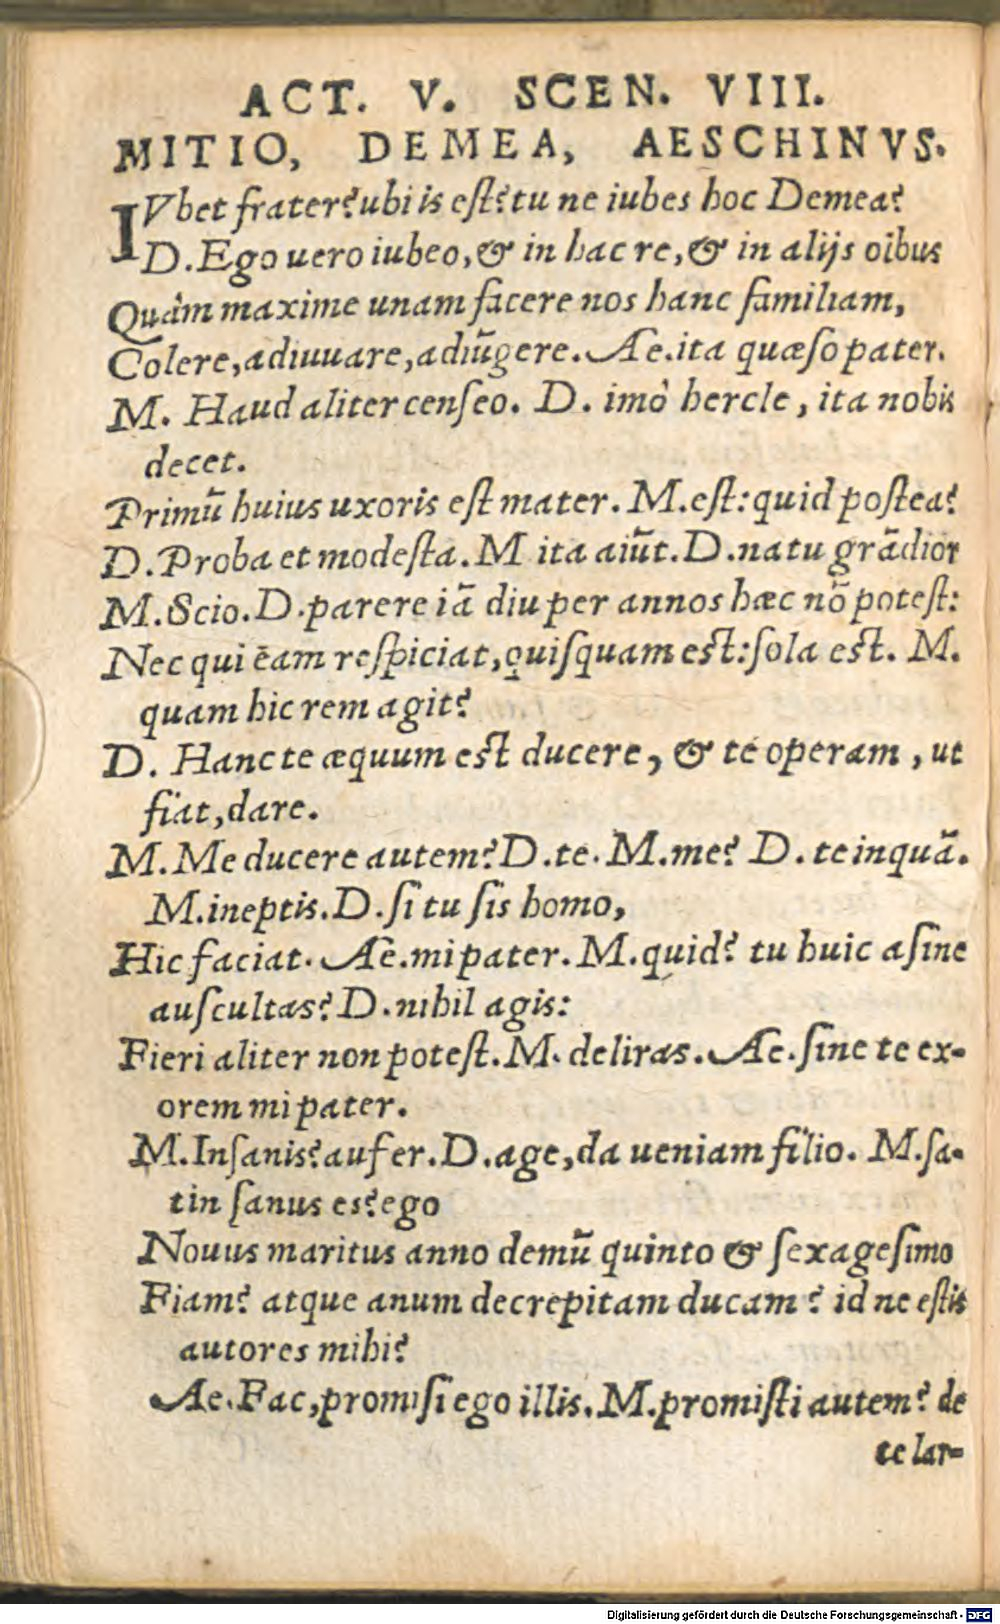 ACT. V. SCEN. VIII.
MITIO, DEMEA, AESCHINVS.
IVbet frater? ubi is eſt? tu ne iubes hoc Demea?
D. Ego uero iubeo, & in hac re, & in alijs oībus
Quàm maxime unam facere nos hanc familiam,
Colere, adiuuare, adiūgere. Ae. ita quæſo pater.
M. Haud aliter cenſeo. D. imò hercle, ita nobis
decet.
Primū huius uxoris eſt mater. M. eſt: quid poſtea?
D. Proba et modeſta. M ita aiūt. D. natu grādior
M. Scio. D. parere iā diu per annos hæc nō poteſt:
Nec qui eam reſpiciat, quiſquam eſt: ſola eſt. M.
quam hic rem agit?
D. Hanc te æquum eſt ducere, & te operam, ut
fiat, dare.
M. Me ducere autem? D. te. M. me? D. te inquā.
M. ineptis. D. ſi tu ſis homo,
Hic faciat. Ae. mi pater. M. quid? tu huic aſine
auſcultas? D. nihil agis:
Fieri aliter non poteſt. M. deliras. Ae. ſine te ex-
orem mi pater.
M. Inſanis? aufer. D. age, da ueniam filio. M. ſa-
tin ſanus es? ego
Nouus maritus anno demū quinto & ſexageſimo
Fiam? atque anum decrepitam ducam? id ne eſtis
autores mihi?
Ae. Fac, promiſi ego illis. M. promiſti autem? de
te lar-
Digitalisierung gefördert durch die Deutsche Forschungsgemeinschaft - DFG